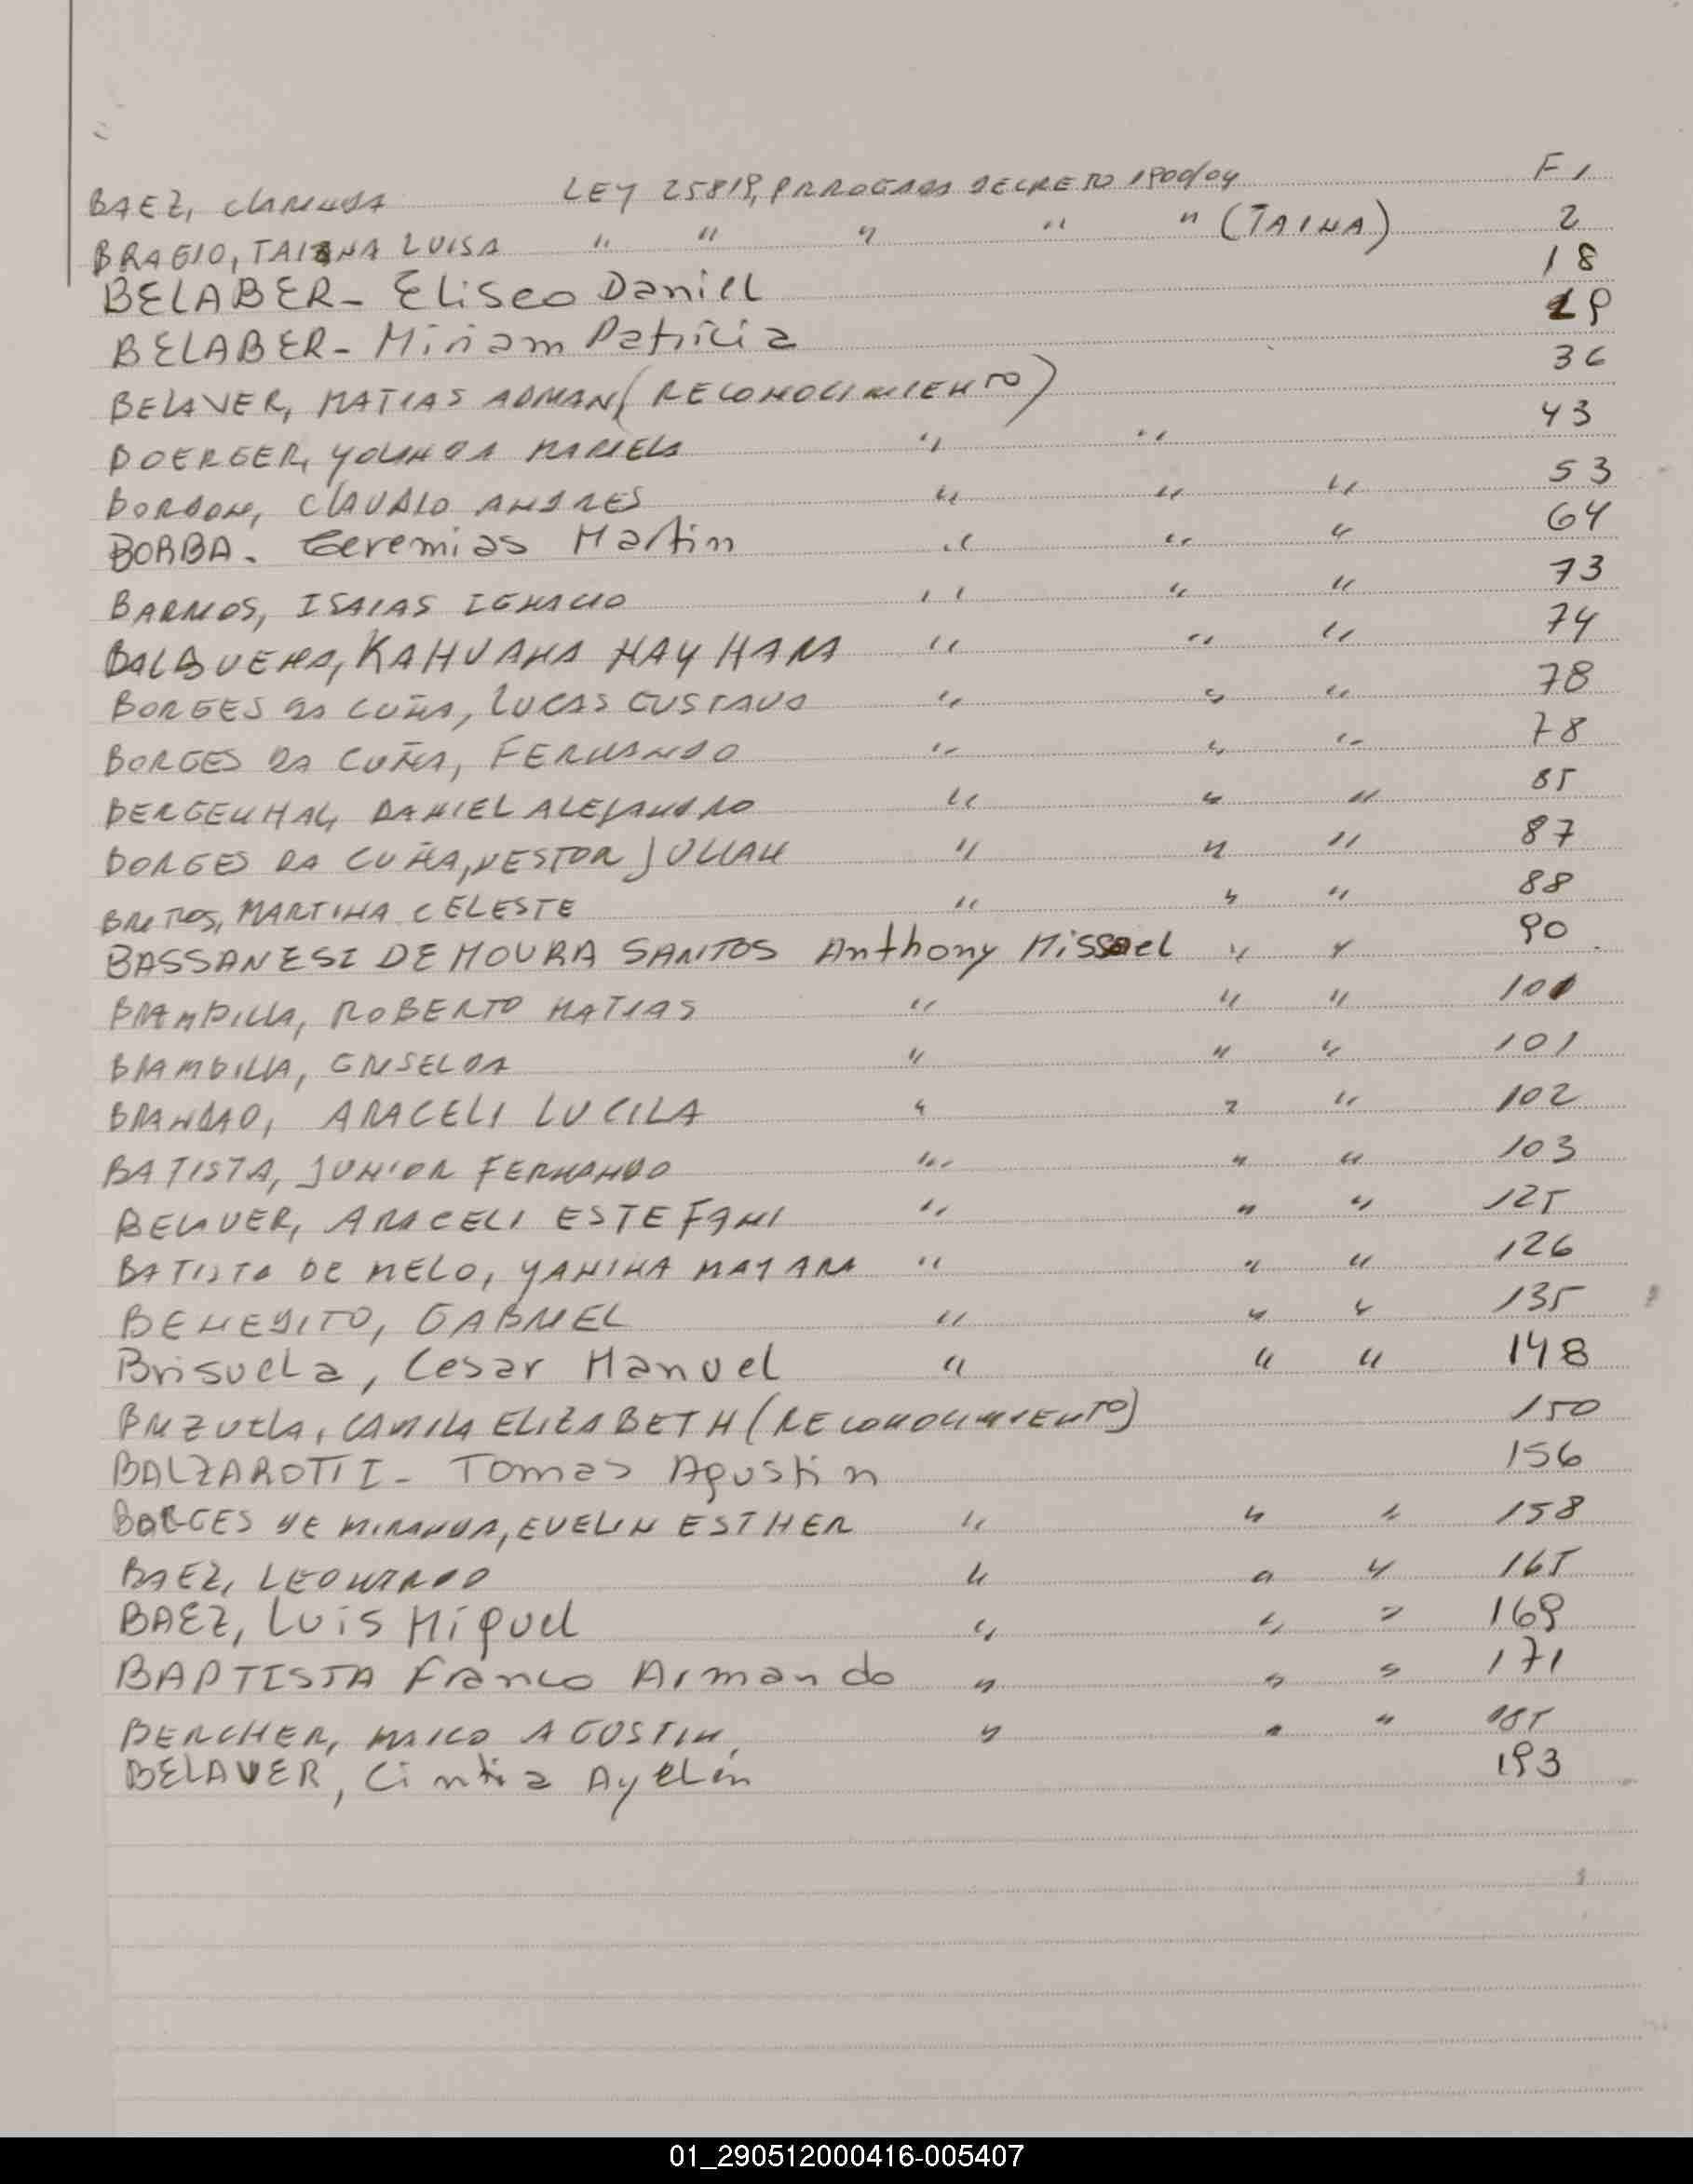 BAEZ, CLARINDA LEY 25819, PRROGADA DECRETO 1900/04 F 1
BRAGIO, TAIANA LUISA " " " " " (TAINA) 2
BELABER - Eliseo Daniel 18
BELABER - Miriam Patricia 19
BELAVER, MATIAS ADRIAN (RECONOCIMIENTO) 36
BOERGER, YOLANDA MARIELA " " 43
BORDON, CLAUDIO ANDRES " " " 53
BORBA - Geremias Martin " " " 64
BARRIOS, ISAIAS IGNACIO " " " 73
BALBUENA, KAHUANA NAYHARA " " " 74
BORGES DA CUÑA, LUCAS GUSTAVO " " " 78
BORGES DA CUÑA, FERNANDO " " " 78
BERGENHAL, DANIEL ALEJANDRO " " " 85
BORGES DA CUÑA, NESTOR JULIAN " " " 87
BRITOS, MARTINA CELESTE " " " 88
BASSANESI DE MOURA SANTOS Anthony Missael " " 90
BRAMBILLA, ROBERTO MATIAS " " " 101
BRAMBILLA, GRISELDA " " " 101
BRANDAO, ARACELI LUCILA " " " 102
BATISTA, JUNIOR FERNANDO " " " 103
BELAVER, ARACELI ESTEFANI " " " 125
BATISTA DE MELO, YANINA MAYARA " " " 126
BENEDITO, GABRIEL " " " 135
Brisuela, Cesar Manuel " " " 148
BRIZUELA, CAMILA ELIZABETH (RECONOCIMIENTO) 150
BALZAROTTI - Tomas Agustin 156
BORGES DE MIRANDA, EVELIN ESTHER " " " 158
BAEZ, LEONARDO " " " 165
BAEZ, Luis Miguel " " " 169
BAPTISTA Franco Armando " " " 171
BERCHER, MAICO AGOSTIN, " " " 185
BELAVER, Cintia Ayelén 193
01_290512000416-005407